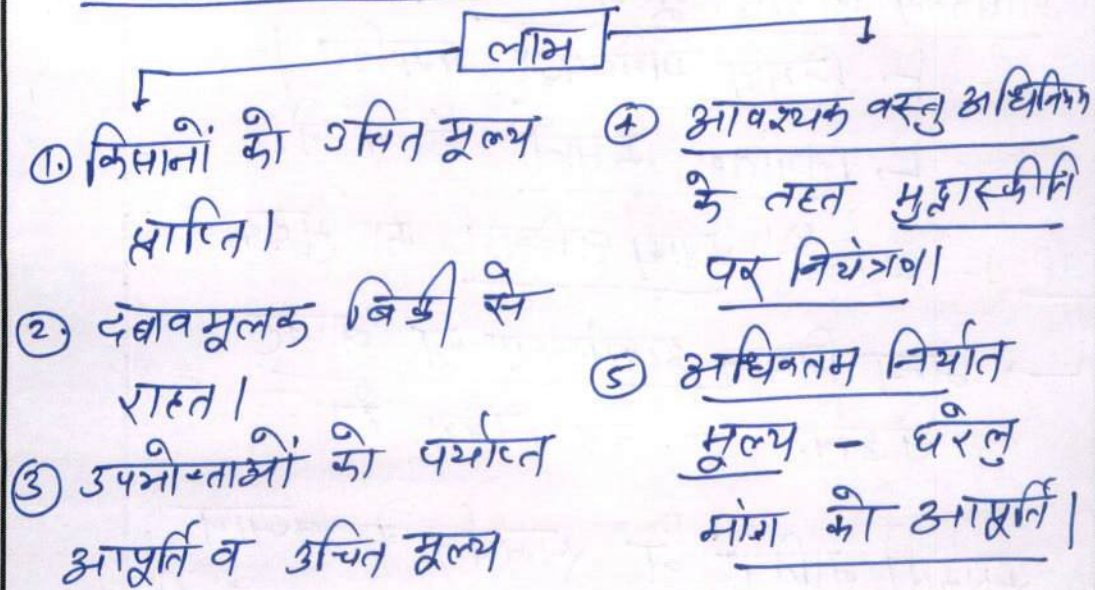 लाभ
①. किसानों को उचित मूल्य
प्राप्ति।
②. दबावमूलक बिक्री से
राहत।
③ उपभोक्ताओं को पर्याप्त
आपूर्ति व उचित मूल्य
④ आवश्यक वस्तु अधिनियम
के तहत मुद्रास्फीति
पर नियंत्रण।
⑤ अधिकतम निर्यात
मूल्य - घरेलु
मांग की आपूर्ति।